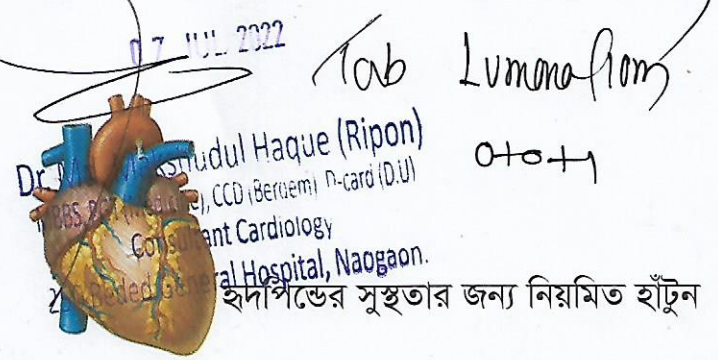 07 JUL 2022
Tab Lumona 10mg
0+0+1
Dr. Haque (Ripon)
CCD (Berdem) D-card (D.U)
Consultant Cardiology
Beded General Hospital, Naogaon.
হৃদপিন্ডের সুস্থতার জন্য নিয়মিত হাঁটুন